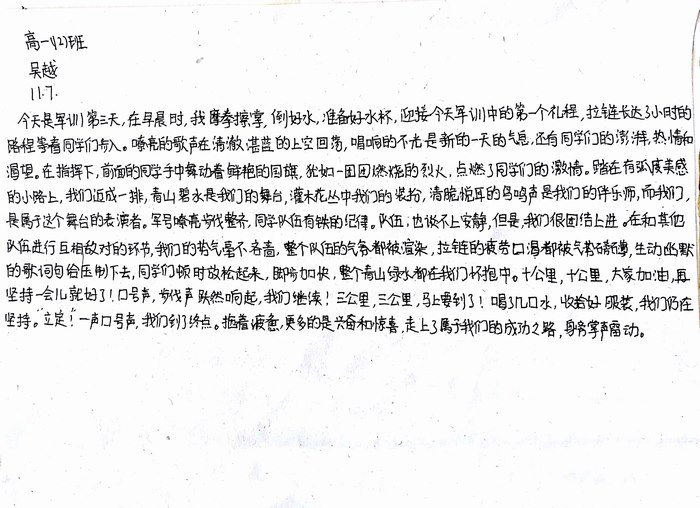 高一(2)班
吴越
11.7.
今天是军训第三天，在早晨时，我摩拳擦掌，倒好水，准备好水杯，迎接今天军训中的第一个礼程，拉链长达了小时的
路程等着同学们步入。嘹亮的歌声在清澈湛蓝的上空回荡，唱响的不光是新的一天的气息，还有同学们的澎湃，热情和
渴望。在指挥下，前面的同学手中舞动着鲜艳的国旗，犹如一团团燃烧的烈火，点燃了同学们的激情。踏在有弧度美感
的小路上，我们迈成一排，青山碧水是我们的舞台，灌木花丛中我们的装扮，清脆悦耳的鸟鸣声是我们的伴乐师，而我们，
是属于这个舞台的表演者。军号嘹亮步伐整齐，同学队伍有铁的纪律。队伍，也谈不上安静，但是，我们很团结上进。在和其他
队伍进行互相敌对的环节，我们的势气毫不吝啬，整个队伍的气势都被渲染，拉链的疲劳口渴都被气势，生动幽默
的歌词句给压制下去，同学们顿时放松起来，脚步加快，整个青山绿水都在我们怀抱中。十公里，十公里，大家加油，再
坚持一会儿就好了！口号声，步伐声跃然响起，我们继续！三公里，三公里，马上要到了！喝了几口水，收拾好服装，我们仍在
坚持。“立定！”一声口号声，我们到了终点。拖着疲惫，更多的是兴奋和惊喜，走上了属于我们的成功之路，身旁掌声雷动。